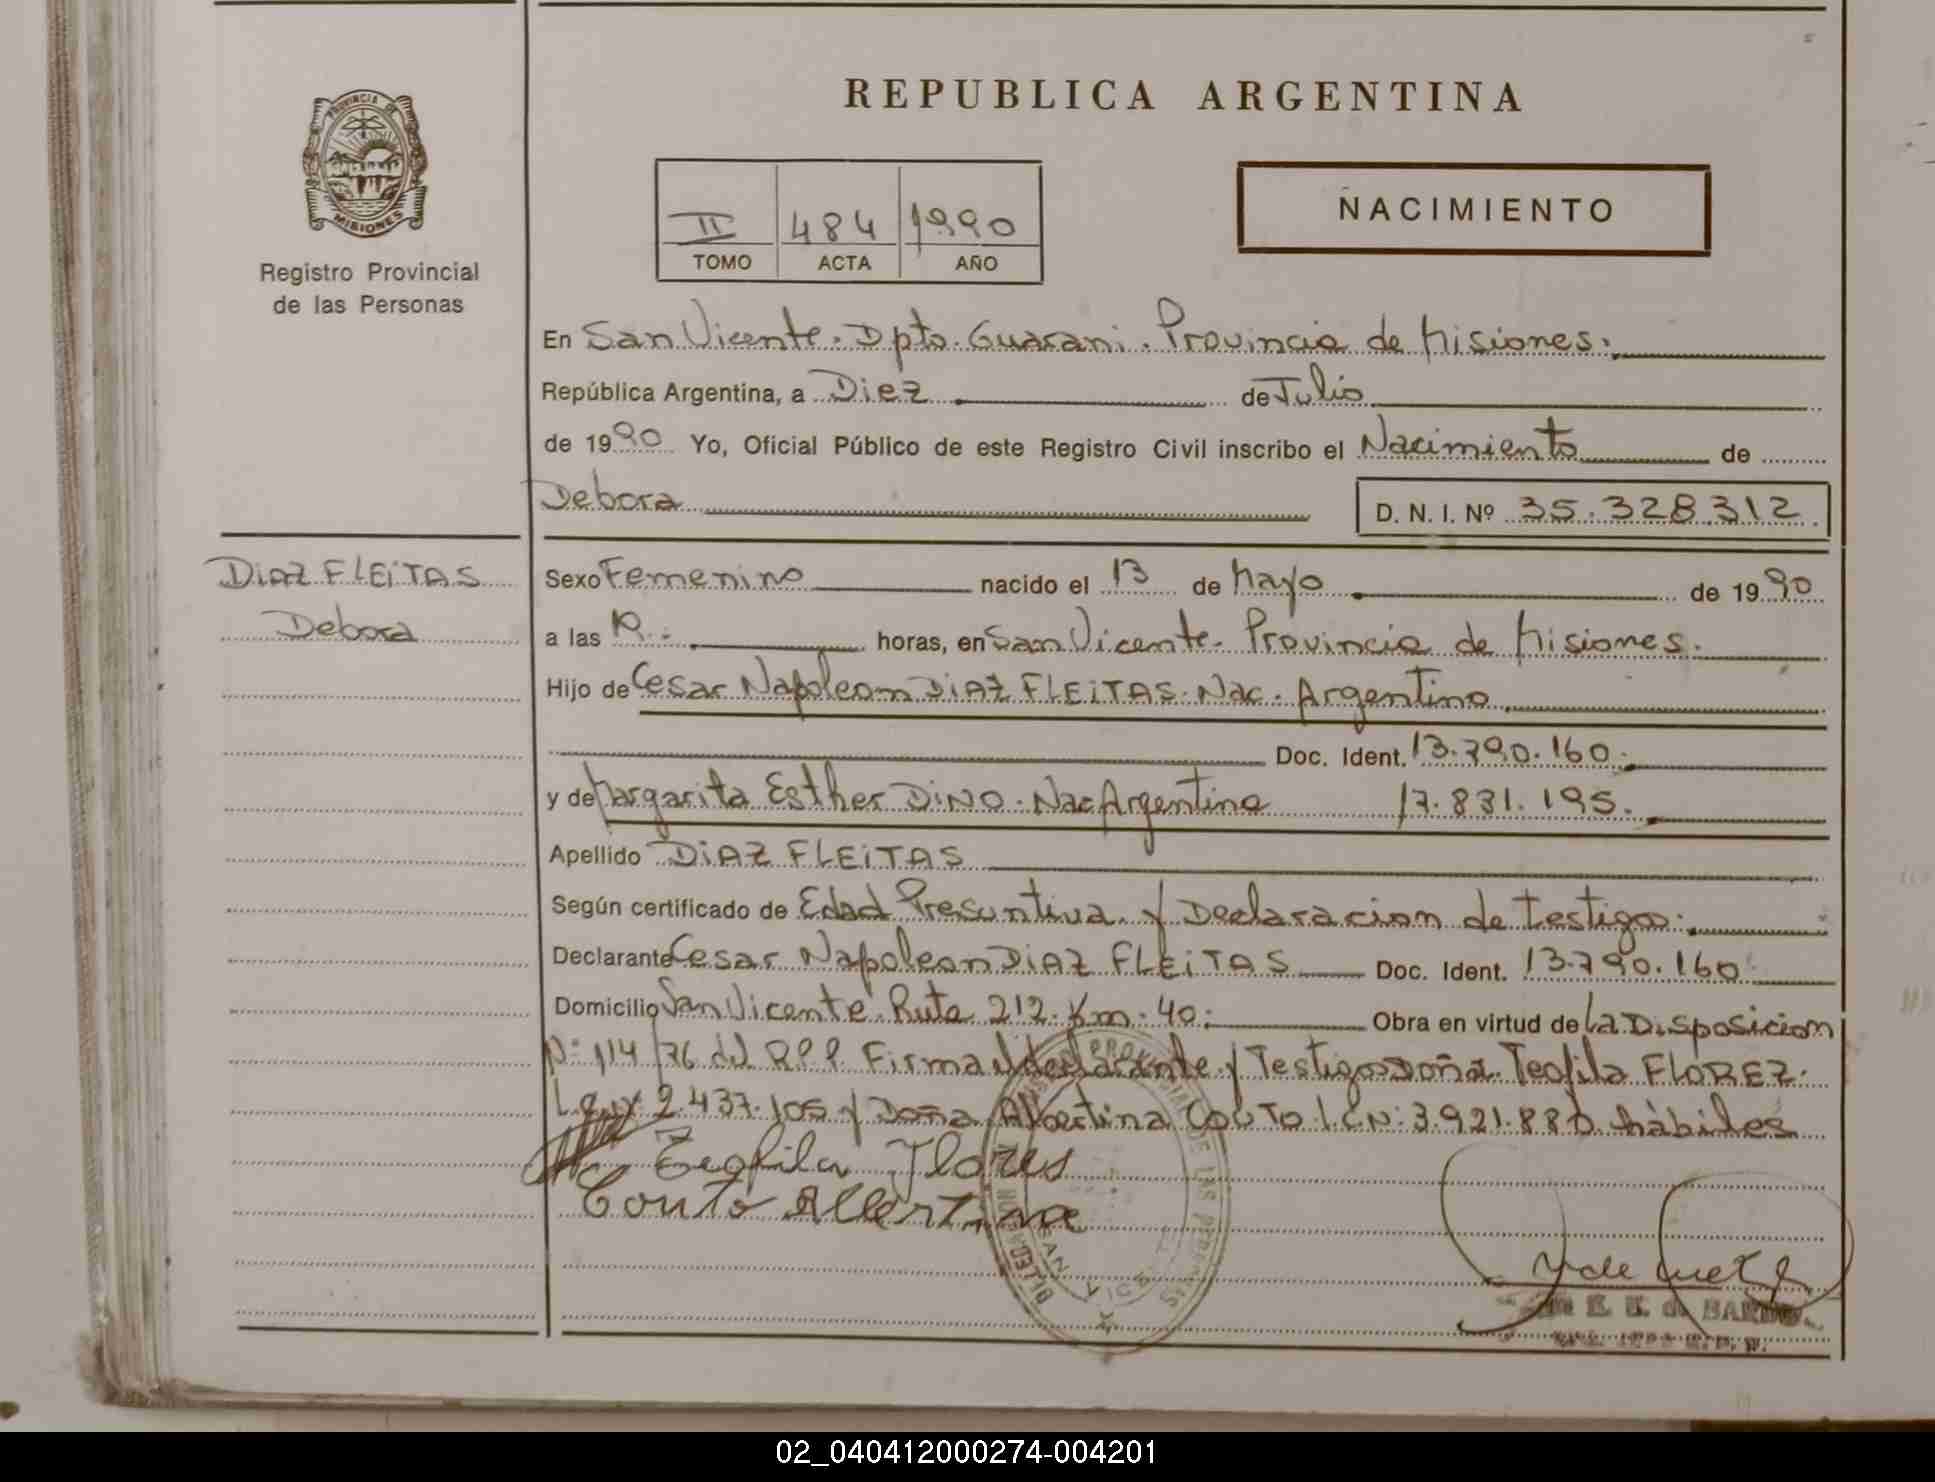 REPUBLICA ARGENTINA
PROVINCIA DE
MISIONES
Registro Provincial
de las Personas
II 484 1990
TOMO ACTA AÑO
NACIMIENTO
En San Vicente. Dpto. Guarani. Provincia de Misiones.
República Argentina, a Diez de Julio
de 1990 Yo, Oficial Público de este Registro Civil inscribo el Nacimiento de
Debora
D. N. I. Nº 35.328.312.
DiAZ FLEiTAS
Debora
Sexo Femenino nacido el 13 de Mayo de 1990
a las horas, en San Vicente. Provincia de Misiones.
Hijo de Cesar Napoleon DiAZ FLEiTAS. Nac. Argentino
Doc. Ident. 13.790.160.
y de Margarita Esther DiNO. Nac Argentina 17.831.195.
Apellido DiAZ FLEiTAS
Según certificado de Edad Presuntiva y Declaracion de testigos.
Declarante Cesar Napoleon DiAZ FLEiTAS Doc. Ident. 13.790.160
Domicilio San Vicente. Ruta 212. Km. 40. Obra en virtud de la Disposicion
Nº 114/76 del R.P.P. Firma el declarante y Testigos Doña Teofila FLOREZ.
2.437.105 y Doña Albertina COUTO L.C.N: 3.921.880 hàbiles
Teofila Flores
Couto Albertina
DE LAS PERSONAS
SAN VICENTE
E. U. de BARDO
02_040412000274-004201